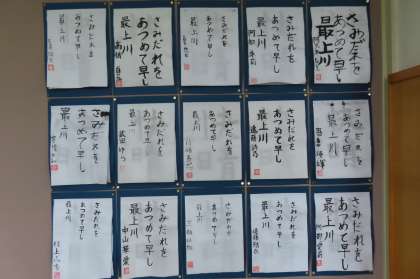 さみだれを
あつめて早し
最上川
さみだれを
あつめて早し
最上川
さみだれを
あつめて早し
最上川
さみだれを
あつめて早し
最上川
さみだれを
あつめて早し
最上川
さみだれを
あつめて早し
最上川
さみだれを
あつめて早し
最上川
さみだれを
あつめて早し
最上川
さみだれを
あつめて早し
最上川
さみだれを
あつめて早し
最上川
さみだれを
あつめて早し
最上川
さみだれを
あつめて早し
最上川
さみだれを
あつめて早し
最上川
さみだれを
あつめて早し
最上川
さみだれを
あつめて早し
最上川